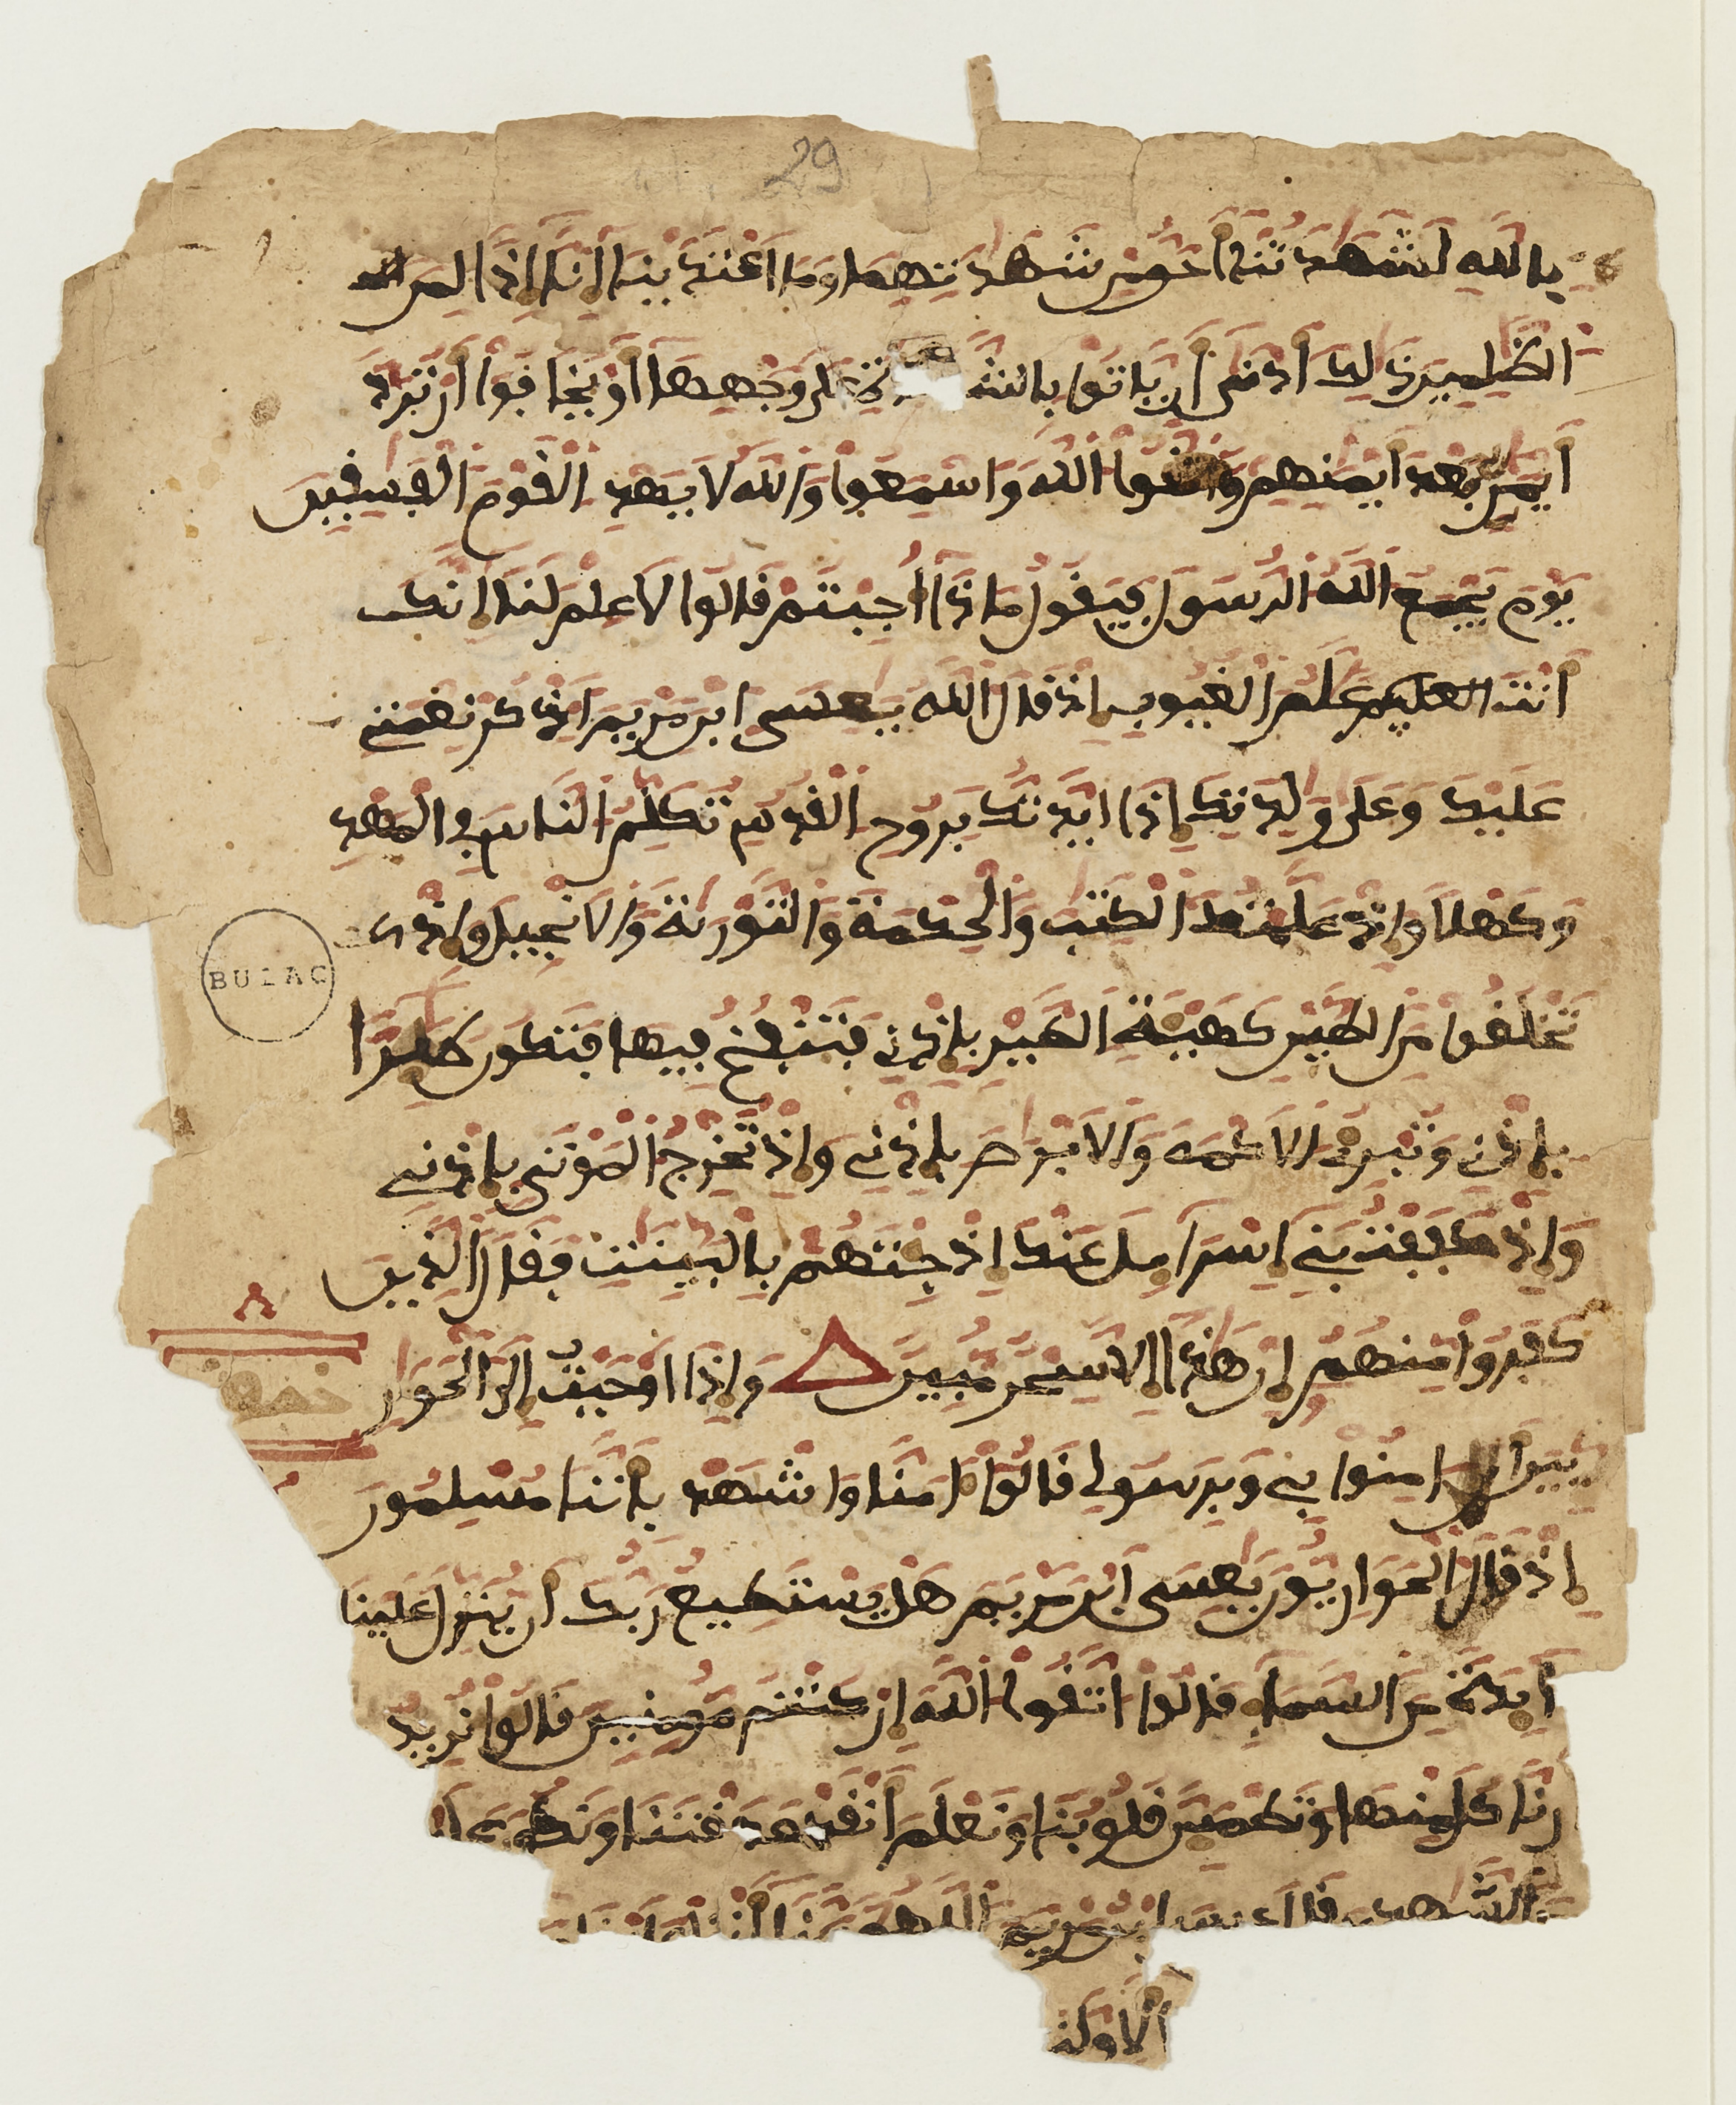 29
بالله لشهدتنا أحق من شهدتهما وما اعتدينا إنا إذا لمن
الظلمين ذلك أدنى أن ياتوا بالشهدة على وجهها أو يخافوا أن ترد
أيمن بعد أيمنهم واتقوا الله واسمعوا والله لا يهدي القوم الفسقين
يوم يجمع الله الرسل فيقول ماذا أجبتم قالوا لا علم لنا إنك
أنت علم الغيوب إذ قال الله يعيسى ابن مريم اذكر نعمتي
عليك وعلى ولدتك إذ ايدتك بروح القدس تكلم الناس في المهد
وكهلا وإذ علمتك الكتب والحكمة والتورية والانجيل وإذ
تخلق من الطين كهيئة الطير بإذني فتنفخ فيها فتكون طيرا
بإذني وتبرئ الاكمه والابرص بإذني وإذ تخرج الموتى بإذني
وإذ كففت بني إسراءيل عنك إذ جئتهم بالبينت فقال الذين
كفروا منهم إن هذا إلا سحر مبين وإذ اوحيت إلى الحوار
يين أن امنوا بي وبرسولي قالوا ءامنا واشهد بأننا مسلمون
إذ قال الحواريون يعيسى ابن مريم هل يستطيع ربك أن ينزل علينا
مايدة من السماء قال اتقوا الله إن كنتم مومنين قالوا نريد
أن ناكل منها وتطمين قلوبنا ونعلم أن قد صدقتنا ونكون
الشهدين قال عيسى ابن مريم اللهم ربنا أنزل علينا
BULAC
الاولنا